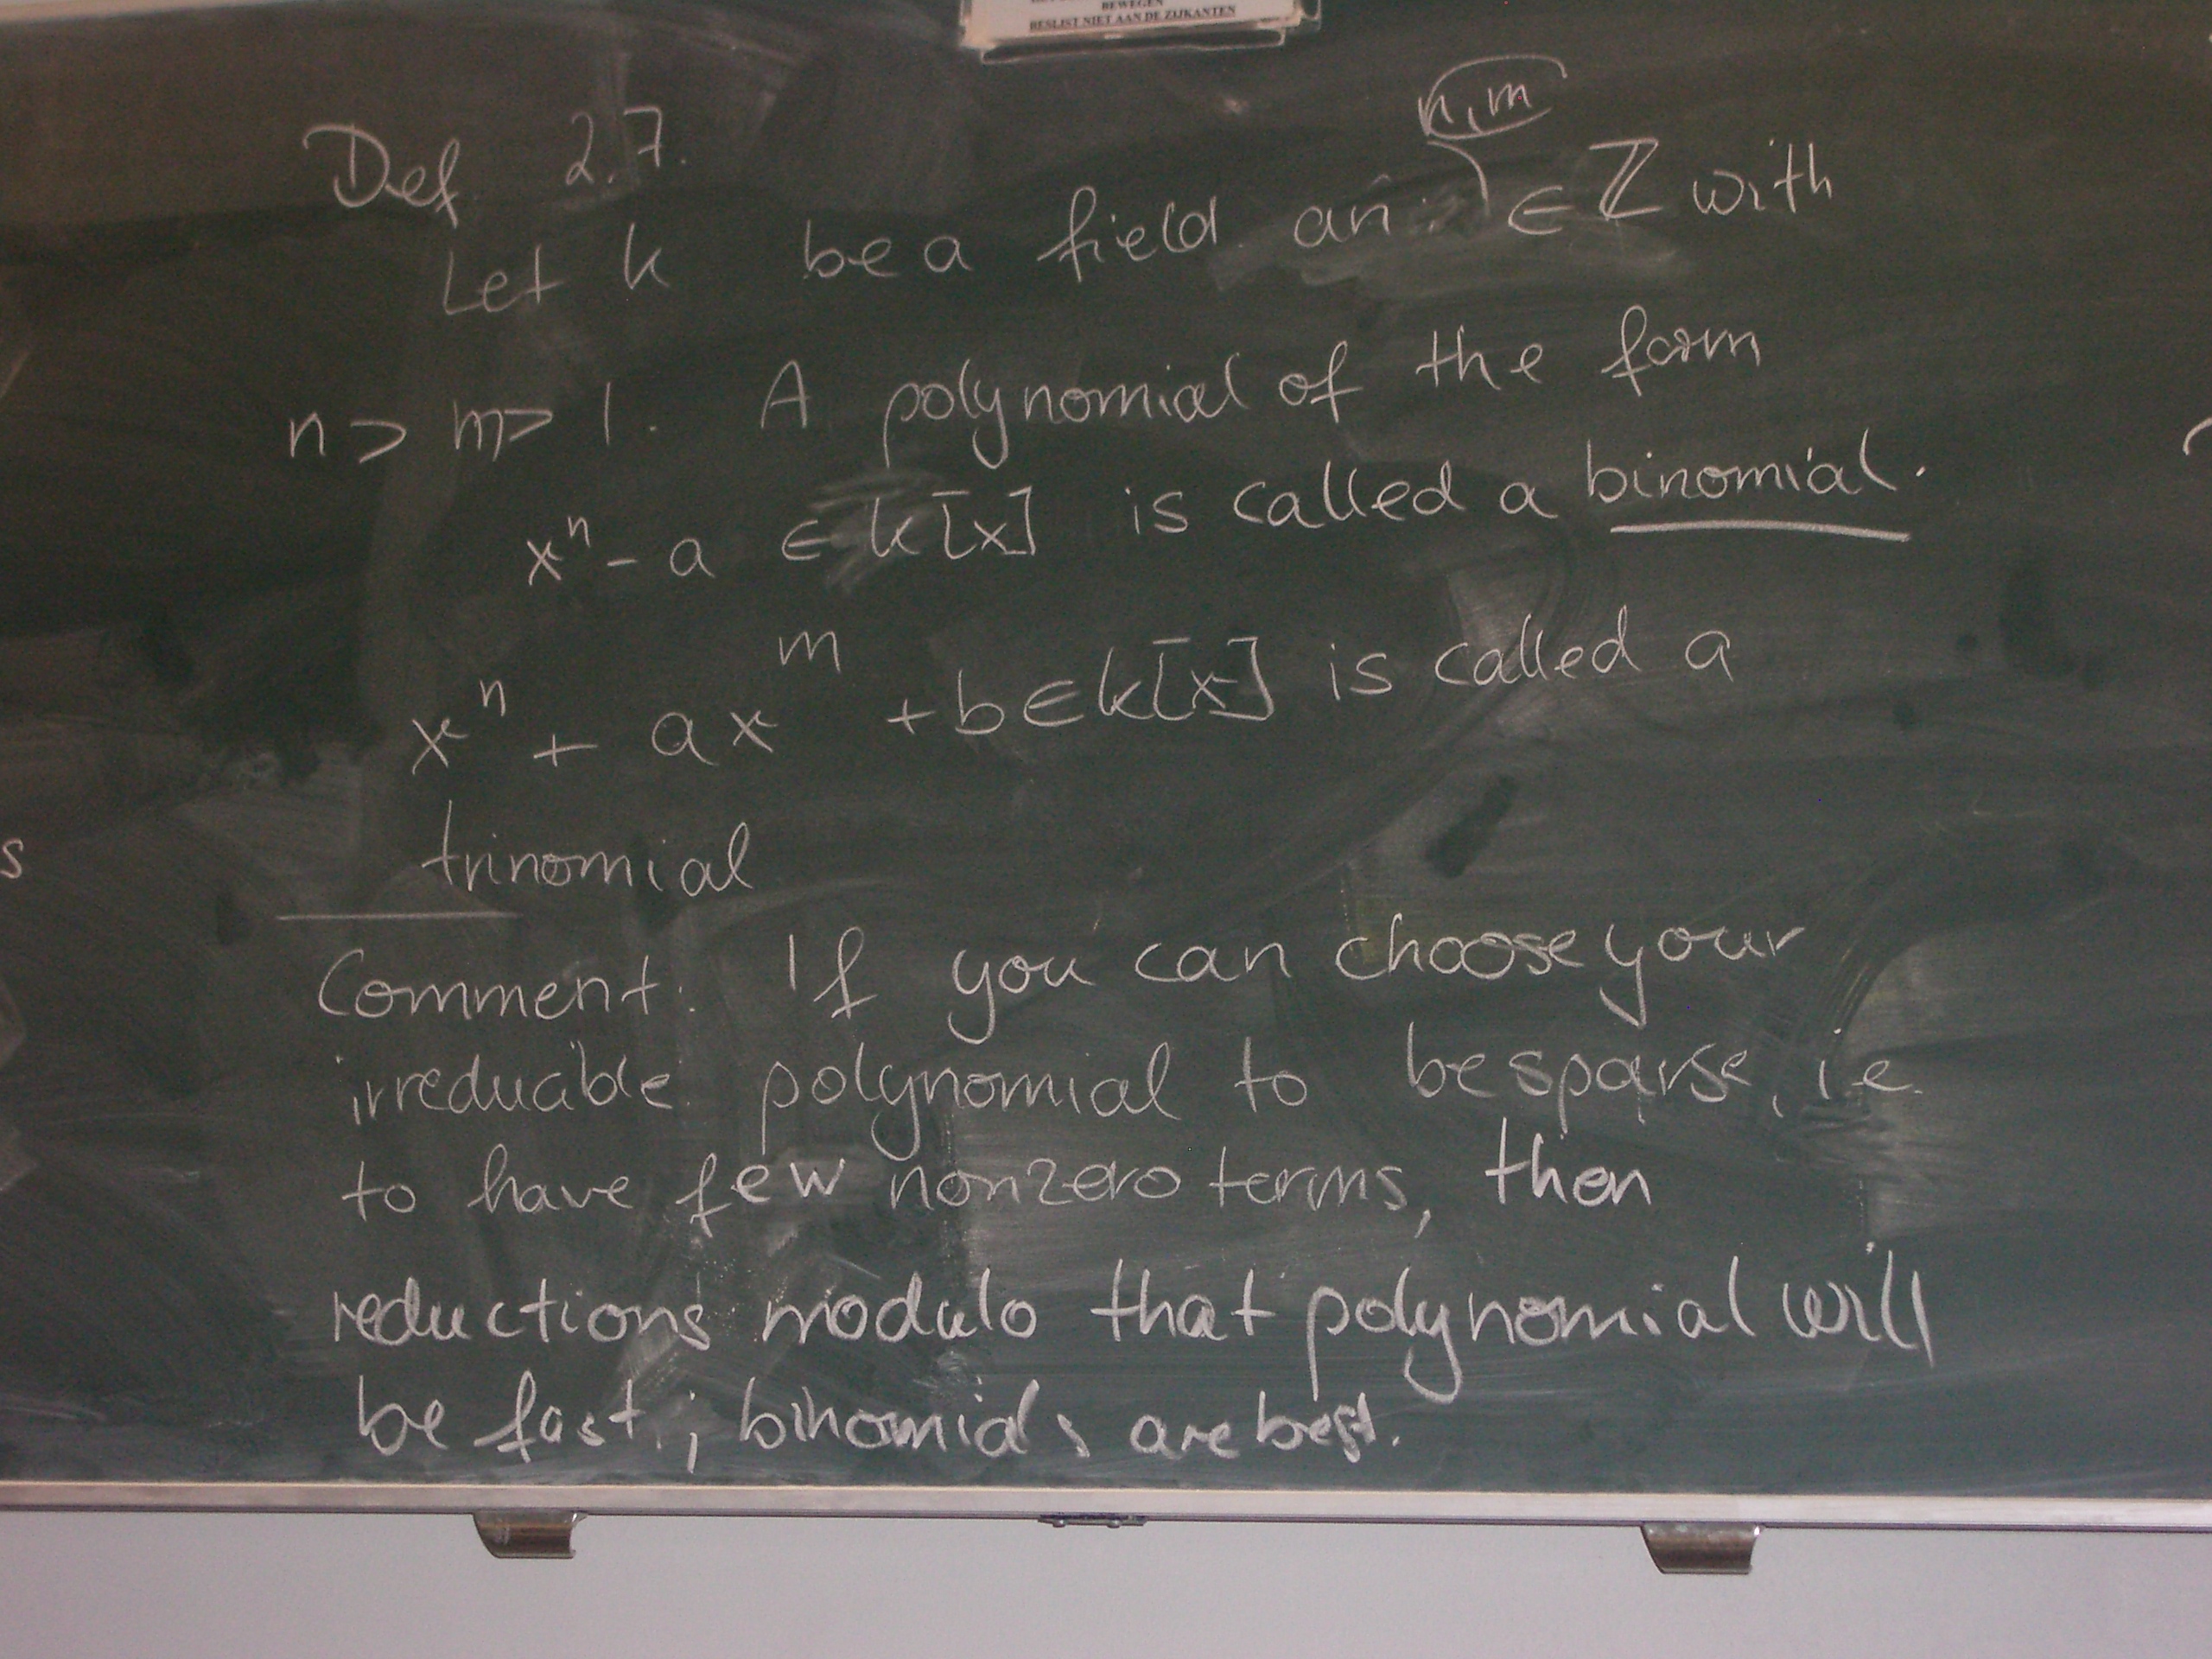 BEWEGEN
BESLIST NIET AAN DE ZIJKANTEN
n, m
Def 2.7.
Let k be a field an ∈ ℤ with
n > m > 1. A polynomial of the form
xⁿ - a ∈ k[x] is called a binomial.
xⁿ + axᵐ + b ∈ k[x] is called a
trinomial
Comment: If you can choose your
irreducible polynomial to be sparse, i.e.
to have few nonzero terms, then
reductions modulo that polynomial will
be fast; binomials are best.
s